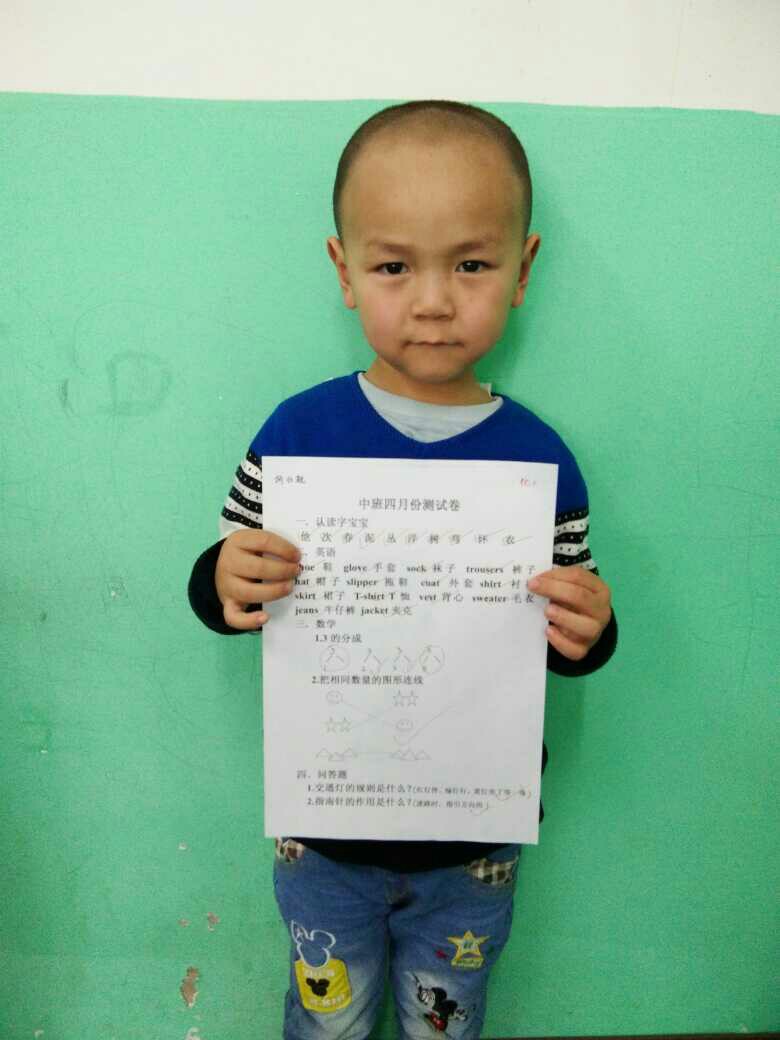 中班四月份测试卷
一、认读字宝宝
他 次 春 泥 丛 洋 树 弯 坏 农
英语
鞋 glove 手套 sock 袜子 trousers 裤子
hat 帽子 slipper 拖鞋 coat 外套 shirt 衬
skirt 裙子 T-shirt T 恤 vest 背心 sweater 毛衣
jeans 牛仔裤 jacket 夹克
三、数学
1.3 的分成
2.把相同数量的图形连线
四、问答题
1.交通灯的规则是什么?(红灯停，绿灯行，黄灯亮了等一等)
2.指南针的作用是什么?(迷路时，指引方向的)